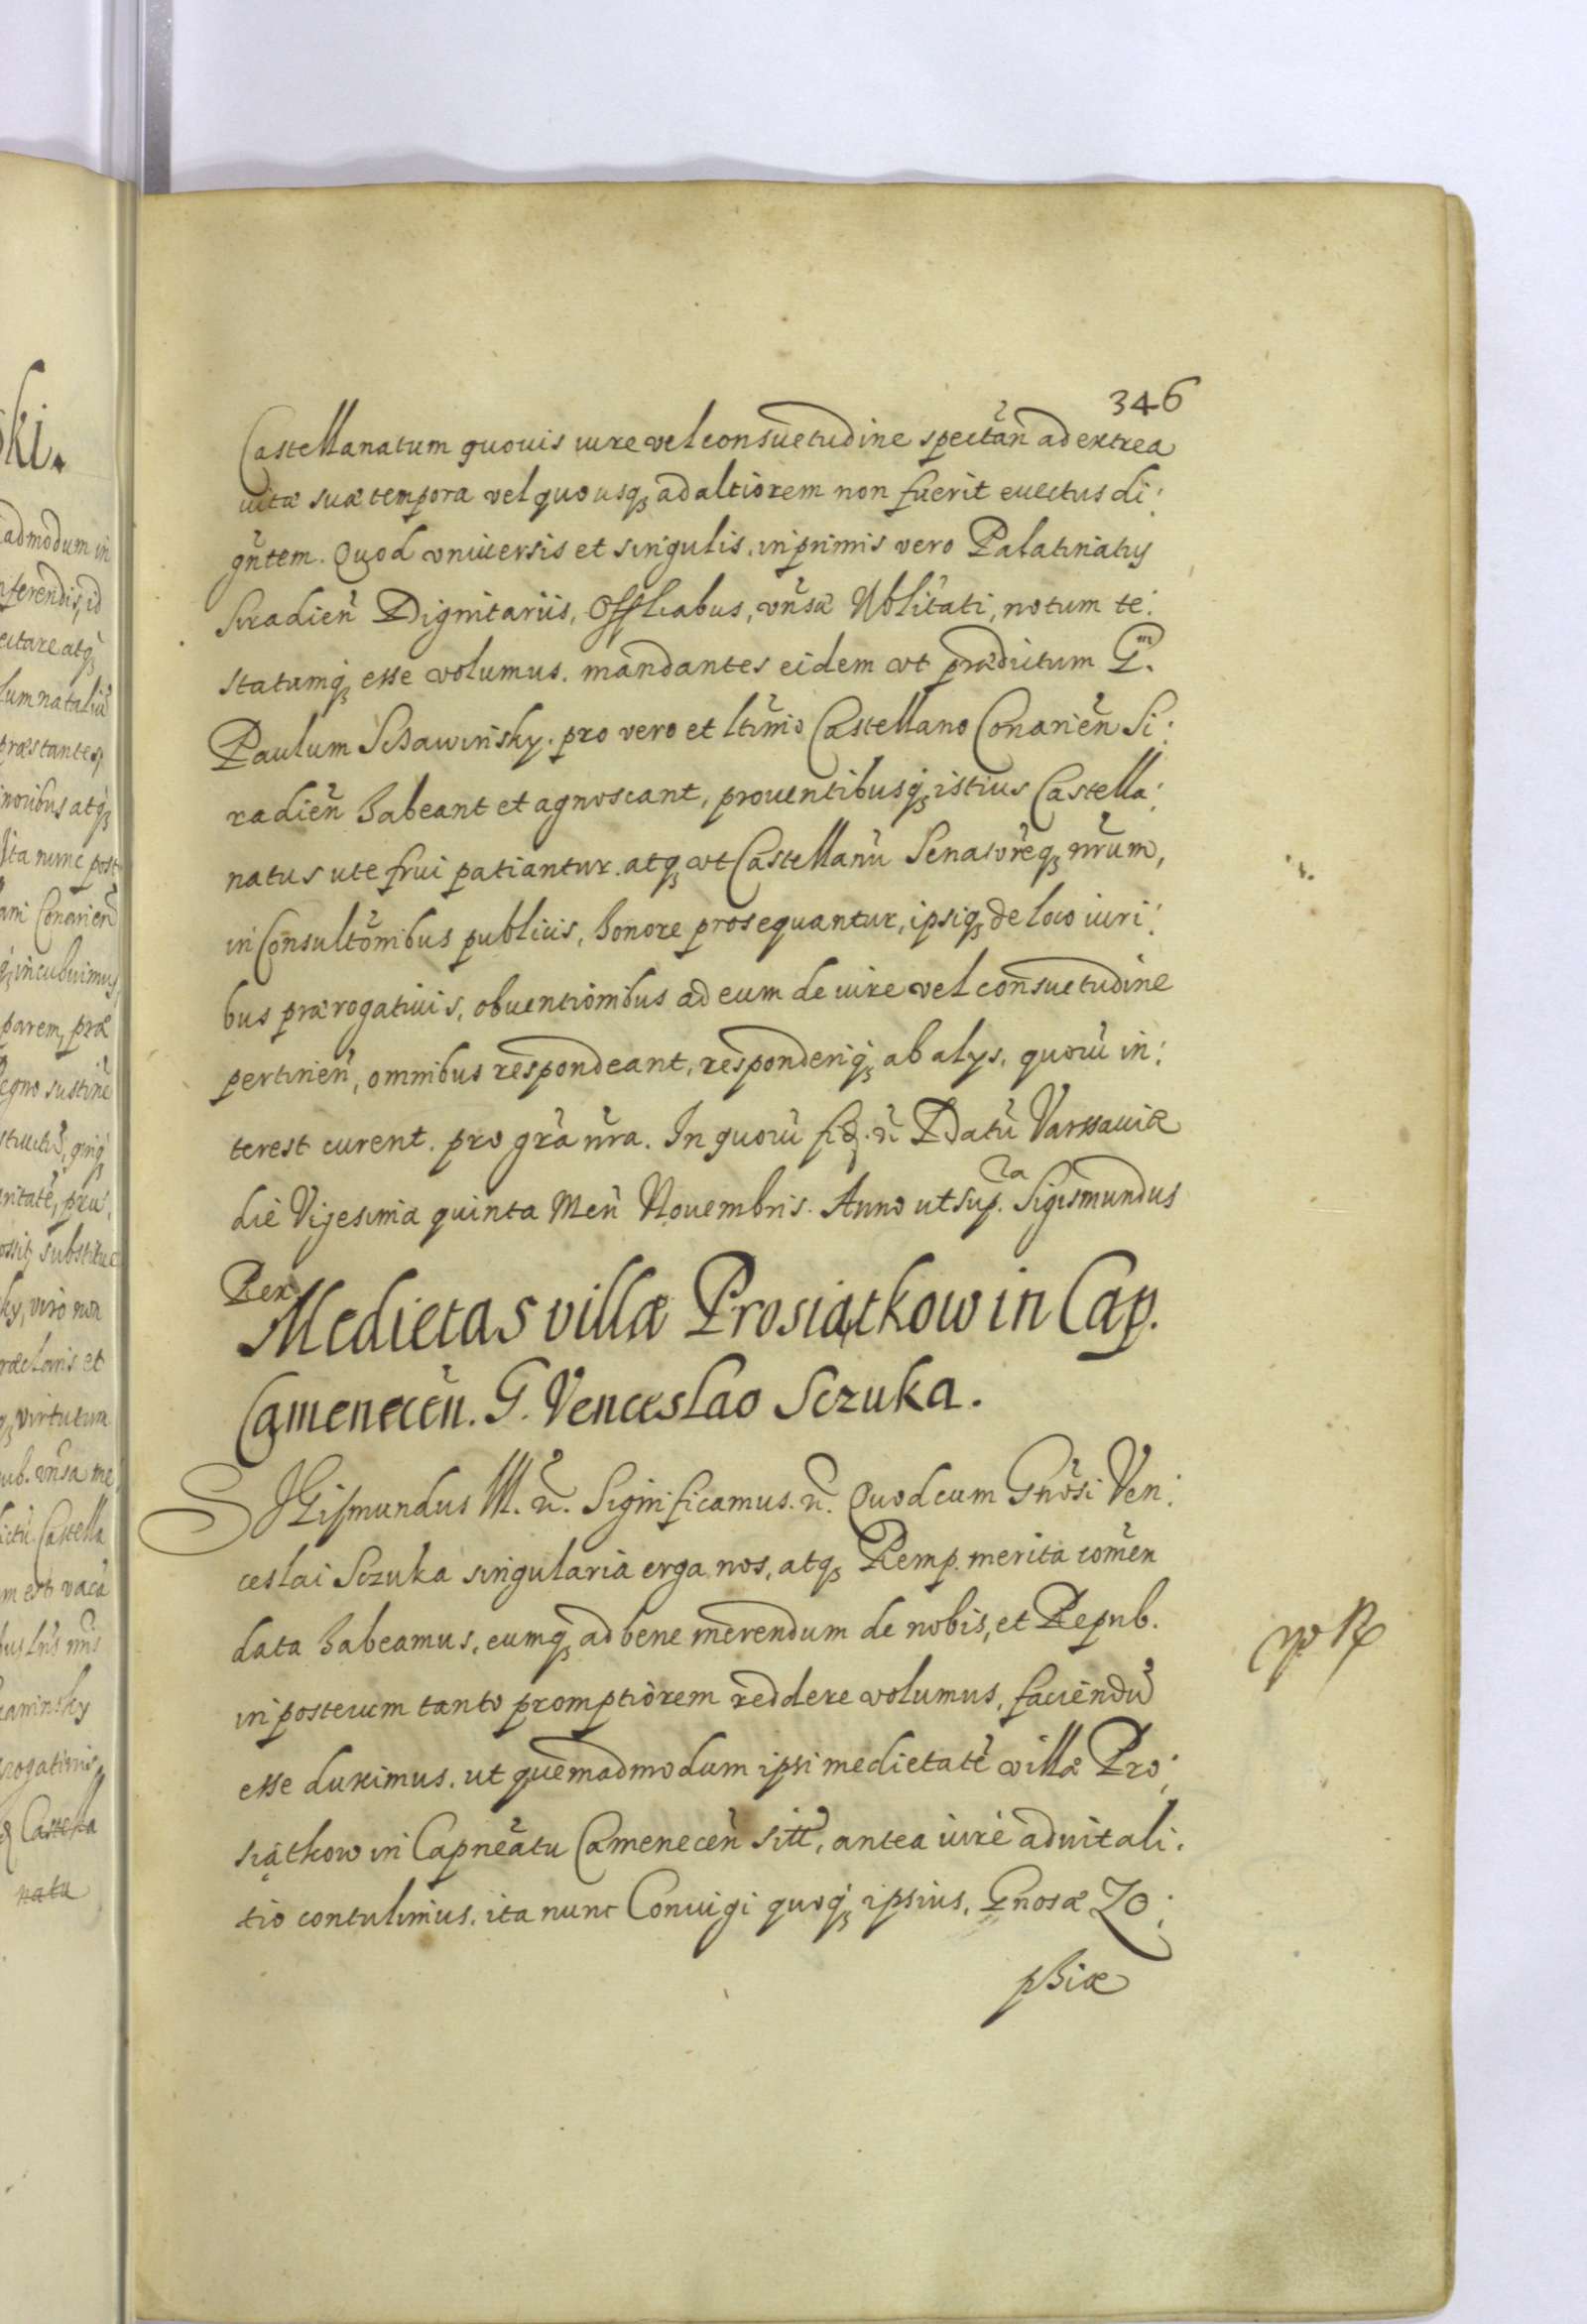 346
Castellanatum quouis iure vel consuetudine spectan̄ ad extrea
vitæ suæ tempora vel quousq₃ ad altiorem non fuerit euectus di:
gn̄tem. Quod vniuersis et singulis, inprimis vero Palatinatus
Siradien̄ Dignitariis, Offlıabus, vn̄sæ Nblitati, notum te:
statumq₃ esse volumus. mandantes eidem vt prædictum G.ᵐ
Paulum Schawinsky. pro vero et ltīmo Castellano Conarien̄ Si:
radien̄ habeant et agnoscant, prouentibusq₃ istius Castella:
natus ute frui patiantur. atq₃ vt Castellanū Senatōreq₃ nr̄um,
in Consultōnibus publicis, honore prosequantur, ipsiq₃ de loco iuri:
bus prærogatiuis, obuentionibus ad eum de iure vel consuetudine
pertinen̄, omnibus respondeant, responderiq₃ ab alys, quorū in:
terest curent. pro grā nr̄a. In quorū fid. n̄ Datū Varssauiæ
die Vigesima quinta Men̄ Nouembris. Anno ut sup.ra Sigismundus
Rex
Medietas villæ Prosiątkow in Cap.
Camenecen̄. G. Venceslao Sczuka.
SIGismundus III. n̄. Significamus. n̄. Quod cum Gn̄osi Ven:
ceslai Sczuka singularia erga nos, atq₃ Remp. merita comēn
data habeamus, eumq₃ ad bene merendum de nobis, et Repub.
in posterum tanto promptiorem reddere volumus, faciendū
esse duximus. ut quemadmodum ipsi medietatē villæ Pro:
siątkow in Capnēatu Camenecen̄ sitt̄, antea iure aduitali:
tio contulimus, ita nunc Coniugi quoq₃ ipsius, Gnosæ Zo:
phiæ
ki.
admodum in
nferendis, id
ectare atq₃
præstantes,
noribus atq₃
Ita nunc post
Conarien̄
incubuimus,
parem, præ
egno sustine
substitue
viro non
virtutum
Castella
Castella
natu